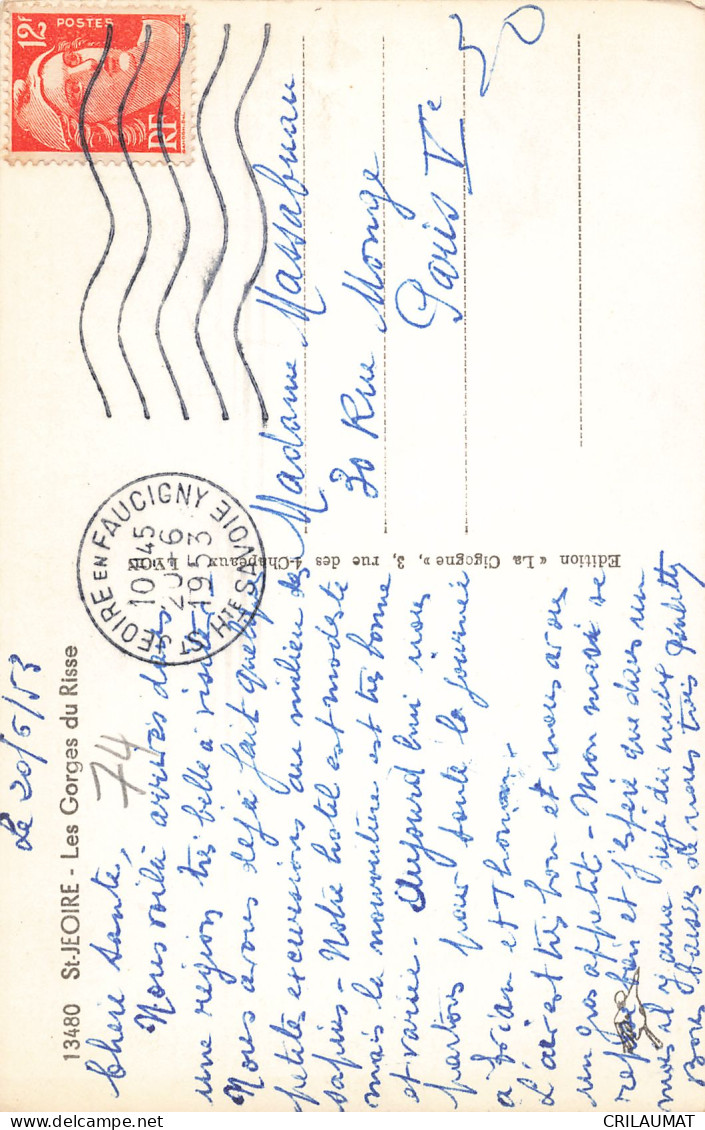 13480 St-JEOIRE - Les Gorges du Risse
Le 20/6/53
Chère tante,
Nous voilà arrivés dans
une région très belle à visiter.
Nous avons déjà fait quelques
petites excursions au milieu des
sapins - Notre hôtel est modeste
mais la nourriture est très bonne
et variée - Aujourd'hui nous
partons pour toute la journée
à Evian et Thonon.
L'air est très bon et nous avons
un gros appétit - Mon mari se
repose bien et j'espère que dans un
mois il y aura déjà du mieux
Bons baisers de nous trois
74
Edition « La Cigogne », 3, rue des 4-Chapeaux - LYON
12F
POSTES
RF
St JEOIRE EN FAUCIGNY
10H45
20-6
1953
HTE SAVOIE
Madame Massabuau
30 Rue Monge
Paris Ve
50
delcampe.net
CRILAUMAT